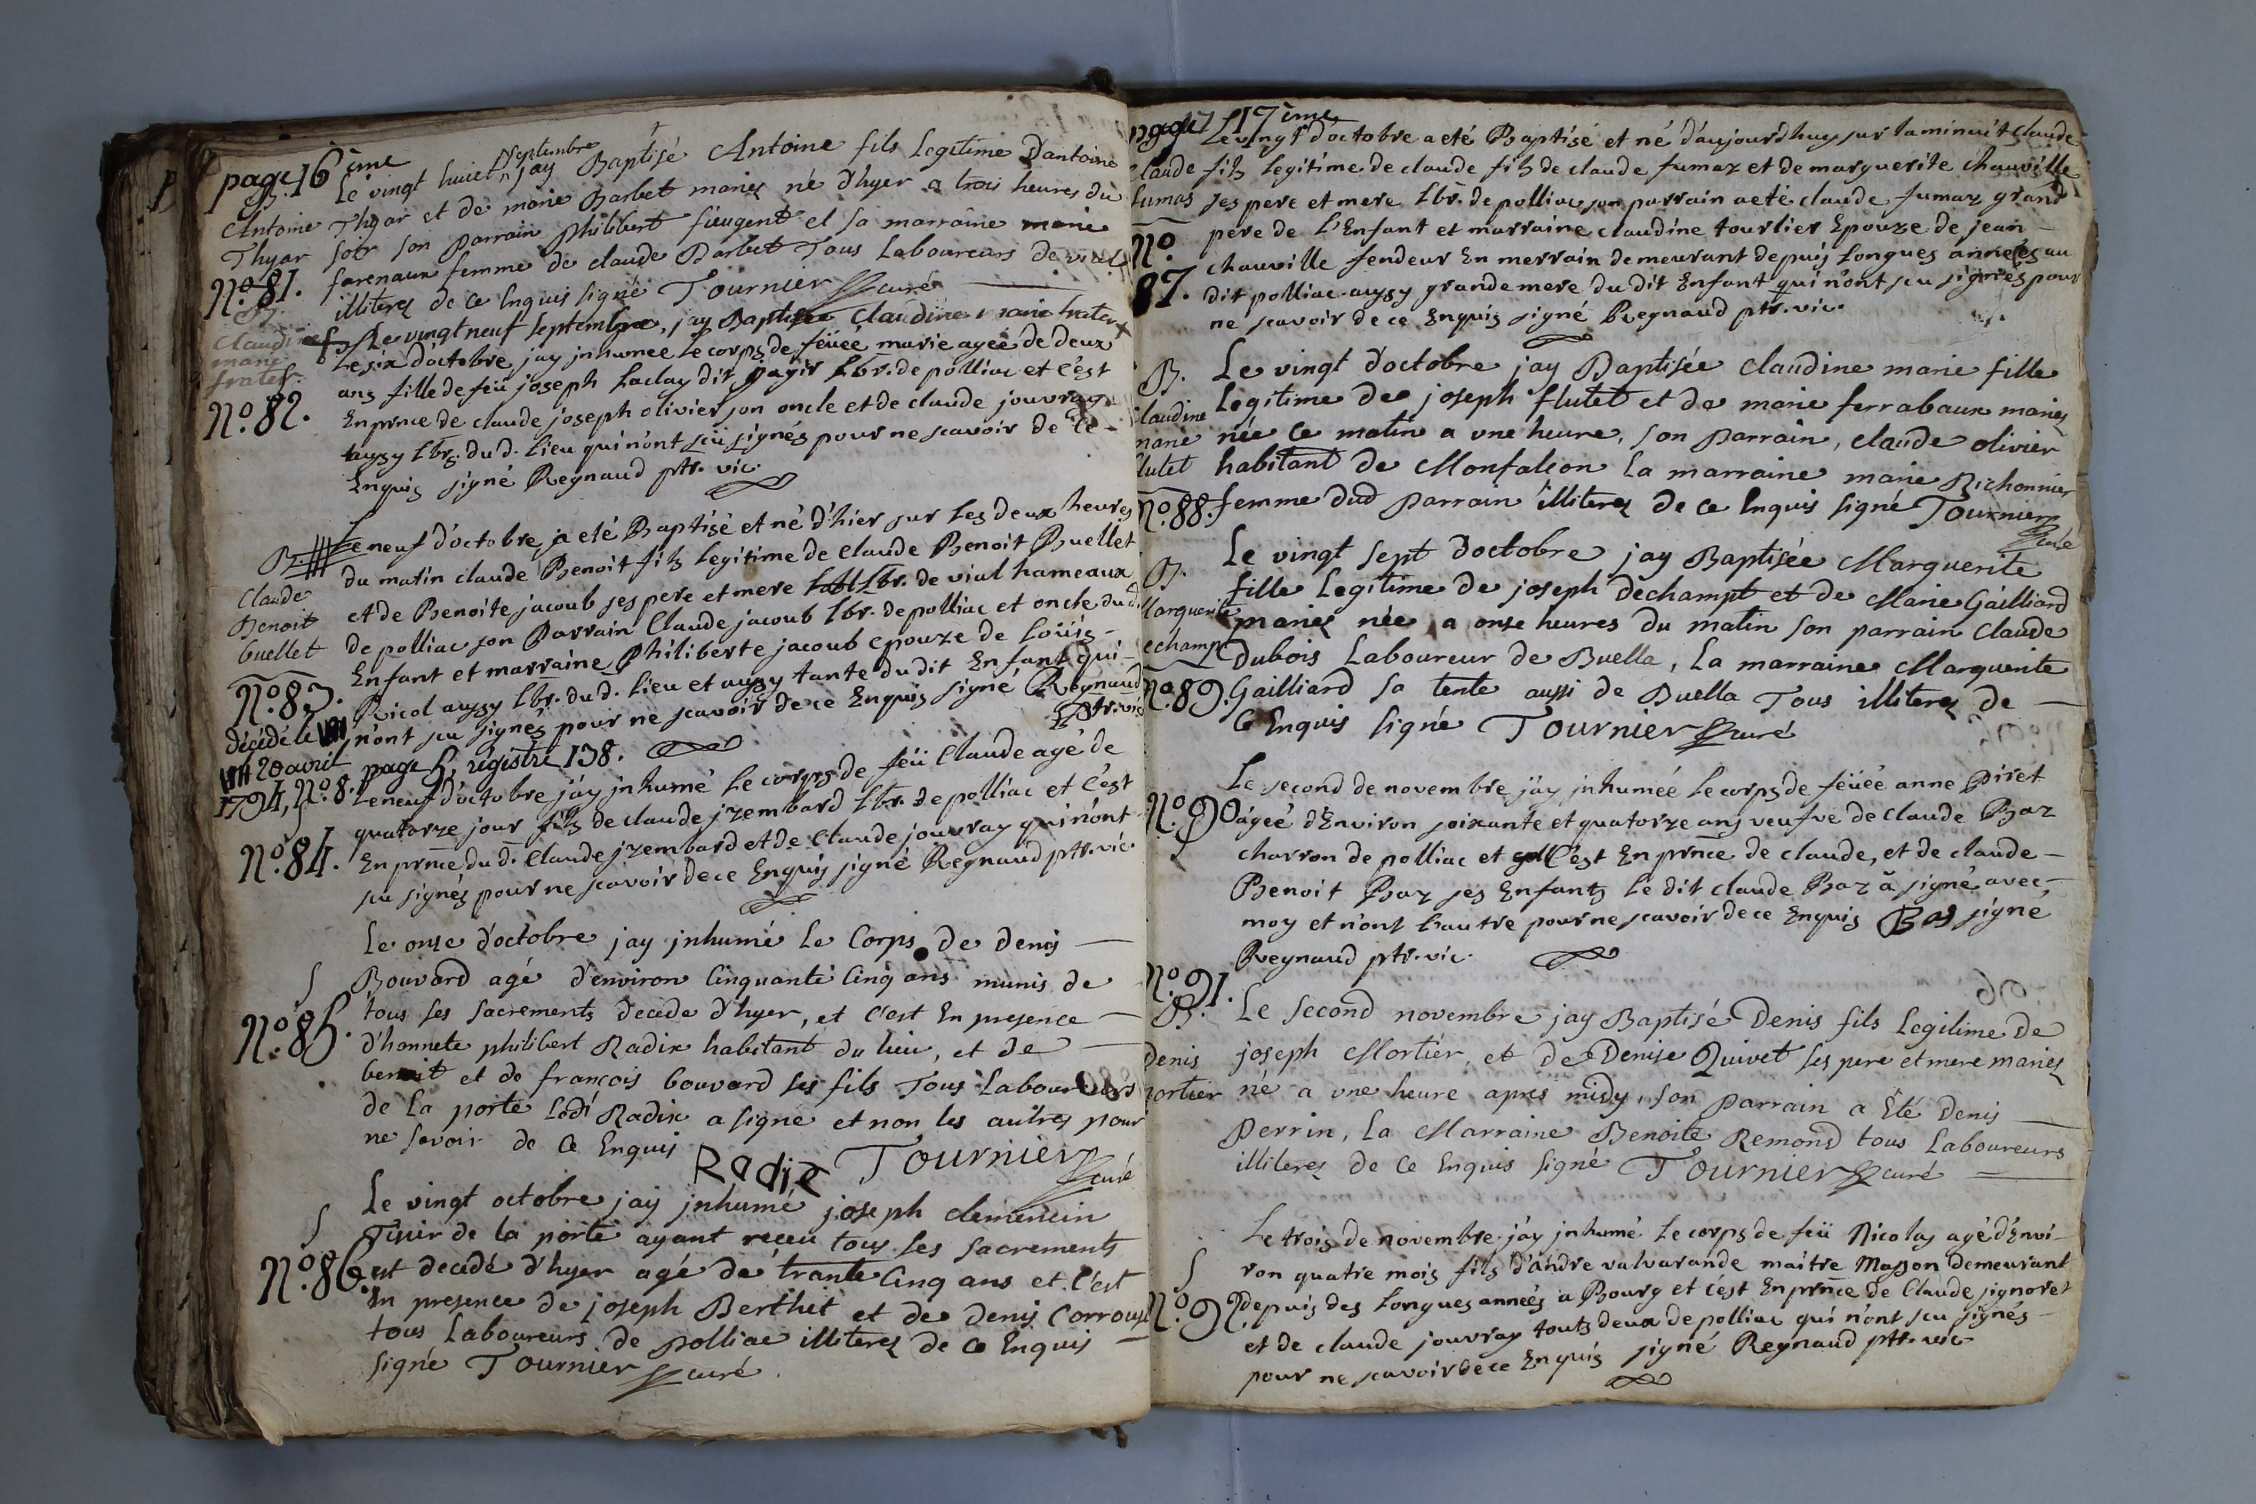 page 16ème
B.
Le vingt huict septembre jay Baptisé Antoine fils Legitime D'antoine
Antoine Thyar et de marie Barbet mariez né d'hyer a trois heures du
Thyar soir son Parrain Philibert füugent et sa marraine marie
No. 81. farenaux femme de claude Barbet Tous Laboureurs de
illiterez de ce Enquis signé Tournier curé
Claudine
marie
frater
Le vingt neuf septembre, jay Baptisée Claudine marie frater
S.
Le six d'octobre jay jnhumee Le corps de feüeé marie ageé de deux
ans fille de feü joseph Laclay dit pagis Lbr. de polliac et C'est
No. 82.
En prnce de claude joseph olivier son oncle et de claude jouvray
aussy Lbrs. du d. Lieu qui n'ont sçü signés pour ne scavoir de ce
Enquis signé Regnaud ptr. vic.
B. Le neuf d'octobre, a eté Baptisé et né d'hier sur Les deux heures
du matin claude Benoit fils Legitime de Claude Benoit Buellet
Claude
Benoit
buellet
et de Benoite jacoub ses pere et mere Lbr. de vial hameaux
de polliac son Parrain Claude jacoub Lbr. de polliac et oncle du d.
Enfant et marraine Philiberte jacoub epouze de Loüis
No. 83.
vicol aussy Lbr. du d. Lieu et aussy tante du dit Enfant qui
n'ont sçu signés pour ne scavoir de ce Enquis signé Regnaud
ptr. vic
décédé le
20 avril page 5, régistre 138.
1794, No. 8.
S
Le neuf d'octobre jáy jnhumé Le corps de feü Claude agé de
quatorze jour fils de claude jzembard Lbr. de polliac et C'est
No. 84.
En prnce du d. Claude jzembard et de Claude jouvray qui n'ont
sçu signés pour ne scavoir de ce Enquis signé Regnaud ptr. vic.
Le onse d'octobre jay jnhumé Le Corps de denis
S
Bouvard agé d'environ Cinquante Cinq ans munis de
No. 85.
tous les sacrements decede d'hyer, et c'est En presence
d'honnete philibert Radix habitant du lieu, et de
benoit et de françois bouvard ses fils Tous Laboureurs
de La porte Ledi Radix a signe et non les autres pour
ne savoir de ce Enquis Radix Tournier curé
Le vingt octobre jay jnhumé joseph clemencin
S
Tisier de la porte ayant receu tous les sacrements
No. 86.
est decedé d'hyer agé de trante Cinq ans et C'est
En presence de joseph Berthet et de denis Corrouge
tous Laboureurs de polliac illiterez de ce Enquis
signé Tournier curé.
page 17 17ème
Le vingt d'octobre a eté Baptisé et né d'aujourdhuy sur la minuit Claude
Claude fils Legitime de claude fils de claude fumaz et de marguerite chauville
fumas ses pere et mere Lbr. de polliac son parrain a eté claude fumaz grand
No
87.
pere de L'Enfant et marraine claudine tourlier Epouze de jean
chauville fendeur En merrain demeurant depuis Longues années au
dit polliac aussy grande mere du dit Enfant qui n'ont sçu signés pour
ne scavoir de ce Enquis signé Regnaud ptr. vic.
B.
Le vingt d'octobre jay Baptisée Claudine marie fille
Claudine Legitime de joseph flutet et de marie ferrabaux mariez
marie née ce matin a une heure, son Parrain, claude olivier
flutet habitant de Monfalcon La marraine marie Richonnier
No. 88. femme dud Parrain illiterez de ce Enquis signé Tournier
curé
Le vingt sept d'octobre jay Baptisée Marguerite
B.
fille Legitime de joseph dechampt et de Marie Gailliard
Marguerite mariez née a onse heures du matin son parrain Claude
dechampt Dubois Laboureur de Buella, La marraine Marguerite
No. 89. Gailliard sa tente aussi de Buella Tous illiterez de
Ce Enquis signé Tournier curé
Le second de novembre jáy jnhuméé Le corps de feüeé anne Piret
No. 90
S
ágeé d'Environ soixante et quatorze ans veufve de Claude Baz
charron de polliac et C'est En prnce de claude, et de claude
Benoit Baz ses Enfants Le dit claude Baz a signé avec
moy et n'ont L'autre pour ne scavoir de ce Enquis Bas signé
Regnaud ptr. vic.
No. 91.
B.
Le second novembre jay Baptisé Denis fils Legitime de
Denis joseph Mortier, et de Denise Quivet ses pere et mere mariez
mortier né a une heure apres midy, son Parrain a Eté denis
Perrin, La Marraine Benoite Remond tous Laboureurs
illiterez de Ce Enquis signé Tournier curé
Le trois de novembre jáy jnhumé Le corps de feü Nicolas agé d'Envi-
S
ron quatre mois fils d'andre valvarande maitre Masson demeurant
No. 92.
depuis des Longues années a Bourg et C'est En prnce de Claude signoret
et de claude jouvray touts deux de polliac qui n'ont sçu signés
pour ne scavoir de ce Enquis signé Regnaud ptr. vic